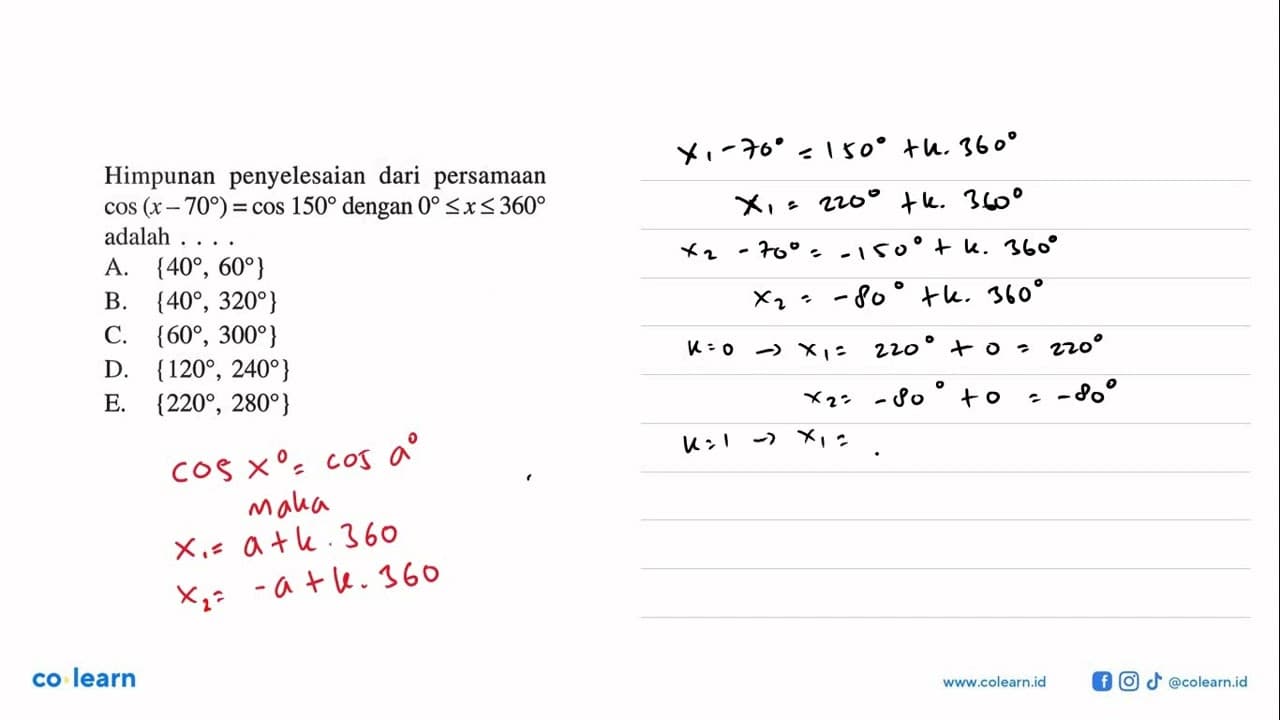 Himpunan penyelesaian dari persamaan
cos (x – 70°) = cos 150° dengan 0° ≤ x ≤ 360°
adalah . . . .
A. {40°, 60°}
B. {40°, 320°}
C. {60°, 300°}
D. {120°, 240°}
E. {220°, 280°}
cos x° = cos a°
maka
x₁ = a + k . 360
x₂ = -a + k . 360
x₁ - 70° = 150° + k. 360°
x₁ = 220° + k. 360°
x₂ - 70° = -150° + k. 360°
x₂ = -80° + k. 360°
k = 0 → x₁ = 220° + 0 = 220°
x₂ = -80° + 0 = -80°
k = 1 → x₁ =
co learn
www.colearn.id
@colearn.id